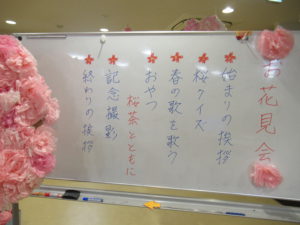 お花見会
始まりの挨拶
桜クイズ
春の歌を歌う
おやつ
桜茶とともに
記念撮影
終わりの挨拶